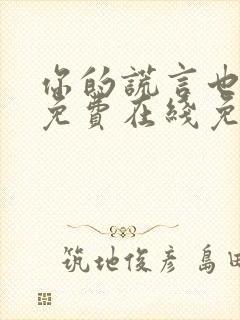 你的谎言也
免費在綫免
筑地俊彥 島田